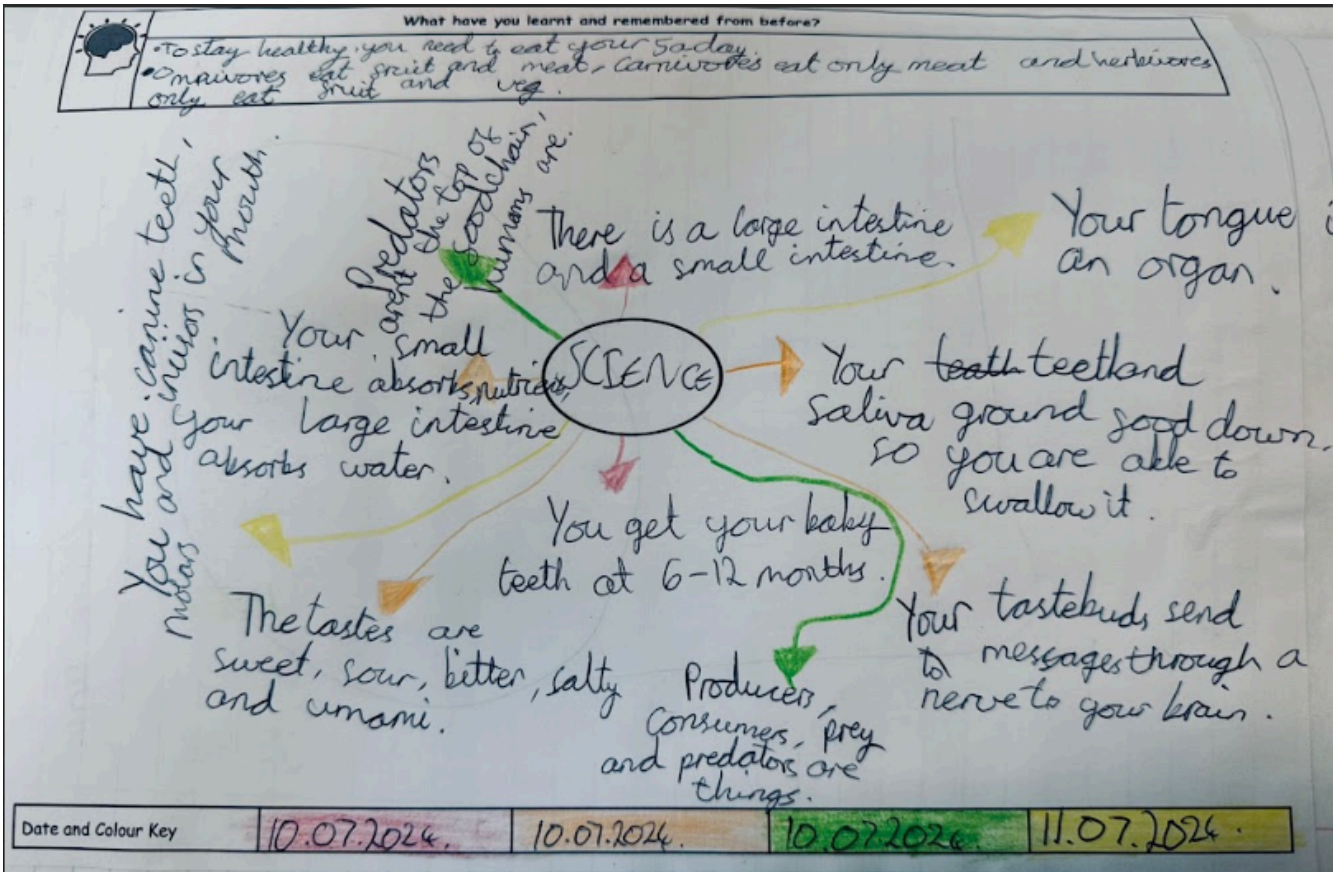 What have you learnt and remembered from before?
•To stay healthy, you need to eat your 5 a day.
•Omnivores eat fruit and meat, carnivores eat only meat and herbivores
only eat fruit and veg.
You have canine teeth,
molors and incisors in your
mouth.
Predators
arent the top of
the foodchain,
humans are.
There is a large intestine
and a small intestine.
Your tongue i
an organ.
Your small
intestine absorbs nutrients,
your large intestine
absorbs water.
SCIENCE
Your teath teethand
saliva ground food down,
so you are able to
swallow it.
You get your baby
teeth at 6-12 months.
The tastes are
sweet, sour, bitter, salty
and umami.
Producers,
consumers, prey
and predators are
things.
Your tastebuds send
messages through a
nerve to your brain.
Date and Colour Key 10.07.2024. 10.07.2024 10.07.2024 11.07.2024.